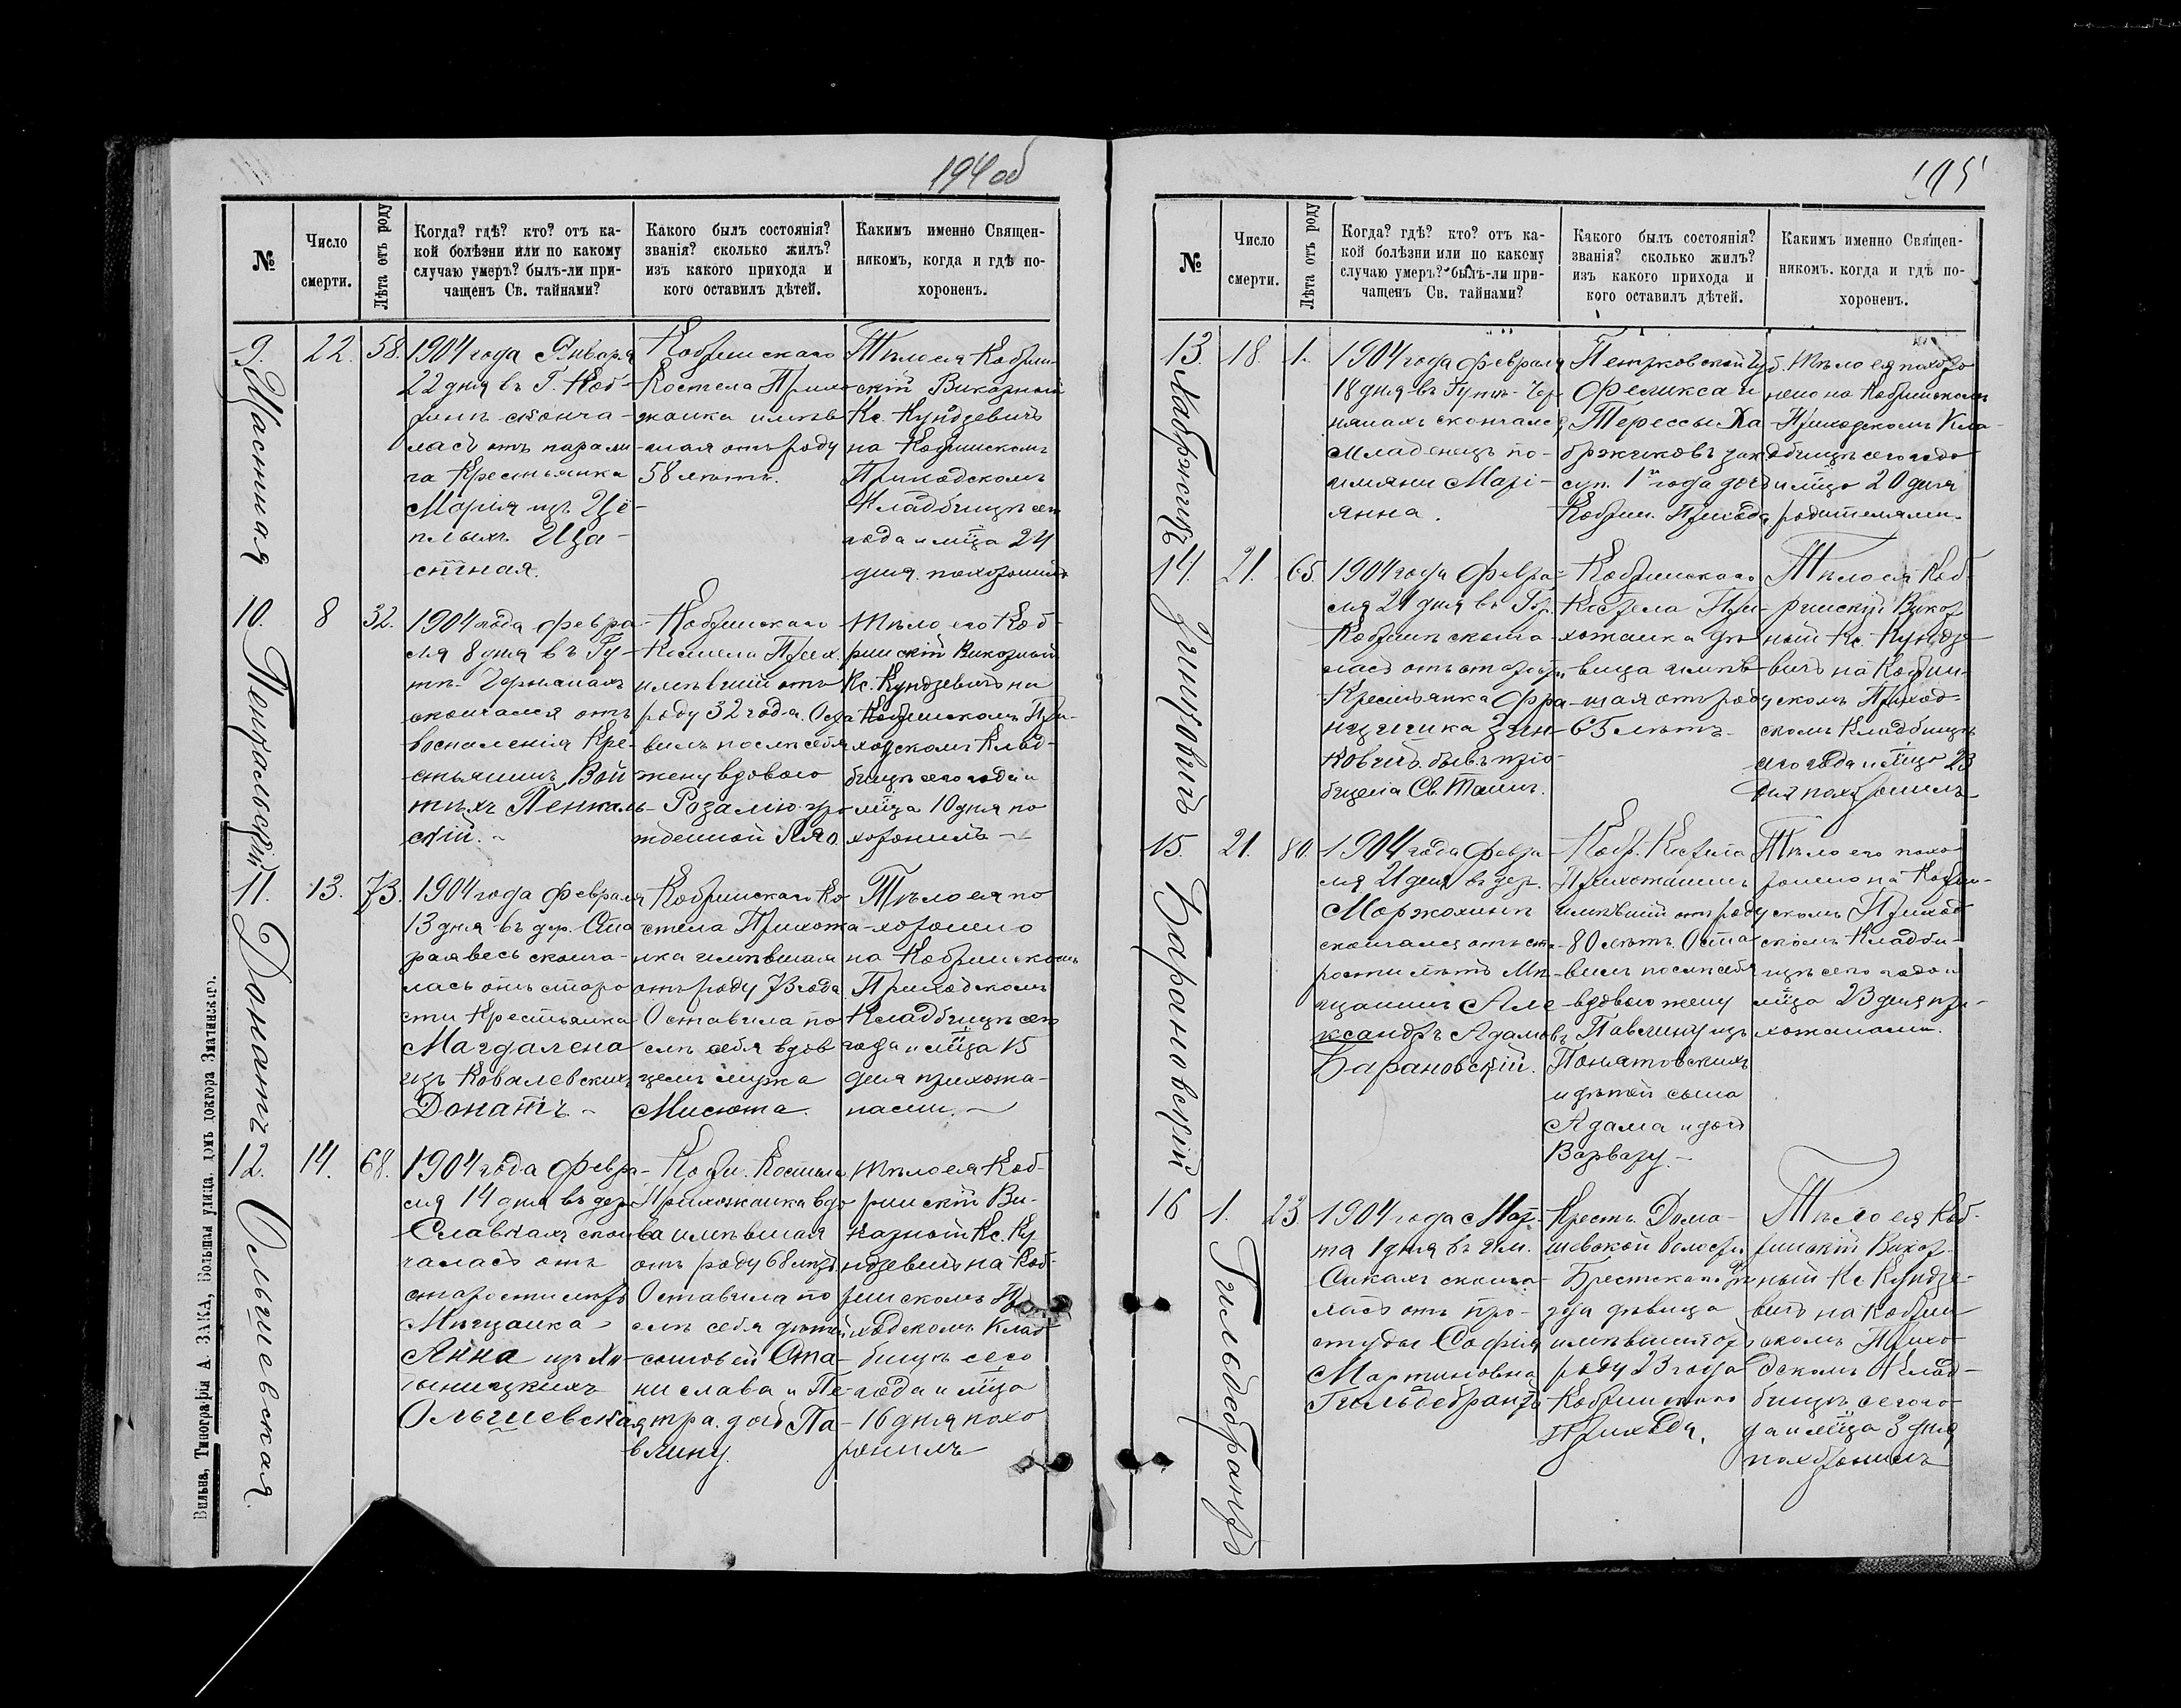 194 об
№
Число
смерти.
Лѣта отъ роду
Когда? гдѣ? кто? отъ ка-
кой болѣзни или по какому
случаю умеръ? былъ-ли при-
чащенъ Св. тайнами?
Какого былъ состоянія?
званія? сколько жилъ?
изъ какого прихода и
кого оставилъ дѣтей.
Какимъ именно Священ-
никомъ, когда и гдѣ по-
хороненъ.
9.
Щастная
22.
58.
1904 года Января
22 дня въ Г. Коб-
ринѣ сконча-
лась отъ парали
ча Крестьянка
Марія изъ
Ща-
стная.
Кобринскаго
Костела Прихо-
жанка имѣв-
шая отъ роду
58 лѣтъ.
Тѣло ея Кобрин-
скій Викарный
Кс. Кундзевичъ
на Кобринскомъ
Приходскомъ
Кладбищѣ сего
года и мѣца 24
дня похоронилъ
10.
Пенкальскій
8
32.
1904 года Февра-
ля 8 дня въ Гу-
тѣ-Чернанахъ
скончался отъ
воспаленія Кре-
стьянинъ Вой
тѣхъ Пенкаль-
скій.
Кобринскаго
Костела Прих.
имѣвшій отъ
роду 32 года. Оста
вилъ послѣ себя
жену вдовою
Розалію уро
жденной
Тѣло его Коб-
ринскій Викарный
Кс. Кундзевичъ на
Кобринскомъ При-
ходскомъ Клад-
бищѣ сего года и
мѣца 10 дня по
хоронилъ
11.
Донатъ
13.
73.
1904 года Февраля
13 дня въ дер. Ста
раявесь сконча-
лась отъ старо
сти Крестьянка
Магдалена
изъ Ковалевскихъ
Донатъ
Кобринскаго Ко
стела Прихожа-
нка имѣвшая
отъ роду 73 года.
Оставила по
слѣ себя вдов
цемъ мужа
Тѣло ея по
хоронено
на Кобринскомъ
Приходскомъ
Кладбищѣ сего
года и мѣца 15
дня прихожа-
нами.
12.
Ольшевская.
14.
68.
1904 года Февра-
ля 14 дня въ дер.
Славкахъ скон
чалась отъ
старости лѣтъ
Мѣщанка
Анна изъ

Ольшевская
Кобр. Костела
Прихожанка вдо
ва имѣвшая
отъ роду 68 лѣтъ.
Оставила по
слѣ себя дѣтей
сыновей Ста-
нислава и Пе-
тра. дочь Па-
влину.
Тѣло ея Коб-
ринскій Ви-
карный Кс. Ку
ндзевичъ на Коб-
ринскомъ При
ходскомъ Клад
бищѣ сего
года и мѣца
16 дня похо
ронилъ
Вильна, Типографія А. ЗАКА, Большая улица, домъ доктора
195
№
Число
смерти.
Лѣта отъ роду
Когда? гдѣ? кто? отъ ка-
кой болѣзни или по какому
случаю умеръ? былъ-ли при-
чащенъ Св. тайнами?
Какого былъ состоянія?
званія? сколько жилъ?
изъ какого прихода и
кого оставилъ дѣтей.
Какимъ именно Священ-
никомъ. когда и гдѣ по-
хороненъ.
13.
18.
1.
1904 года Февраля
18 дня въ Гутѣ-Чер-
нянахъ скончался
Младенецъ по-
имяни Марі-
янна.
Петрковской Губ.
Феликса и
Терессы Ха
бржиковъ зак.
суп. 1го года дочь
Кобрин. Прихода
Тѣло ея похоро
нено на Кобринскомъ
Приходскомъ Кла-
дбищѣ сего года
и мѣца 20 дня
родителями.
14.
Зинковичъ
21.
65.
1904 года Февра-
ля 21 дня въ Гор.
Кобринѣ сконча-
лась отъ старости
Крестьянка Фра-
нцишка Зин-
ковичъ, бывъ прiо-
бщена Св. Таинъ.
Кобринскаго
Костела При-
хожанка дѣ
вица имѣв-
шая отъ роду
65 лѣтъ.
Тѣло ея Коб-
ринскій Викар
ный Кс. Кундзе
вичъ на Кобрин-
скомъ Приход-
скомъ Кладбищѣ
сего года и мѣца 23
дня похоронилъ
15.
Барановскій
21.
80.
1904 года Февра-
ля 21 дня въ дер.

скончался отъ ста-
рости лѣтъ Мѣ-
щанинъ Але-
ксандръ Адамовъ
Барановскій.
Кобр. Костела
Прихожанинъ
имѣвшій отъ роду
80 лѣтъ. Оста
вилъ послѣ себя
вдовою жену
Павлину изъ
Понятовскихъ
и дѣтей сына
Адама и дочь
Варвару.
Тѣло его похо
ронено на Кобрин-
скомъ Приход
скомъ Кладби-
щѣ сего года и
мѣца 23 дня при-
хожанами.
16
Гильдебрандъ
1.
23
1904 года Мар-
та 1 дня въ им.
сконча-
лась отъ про-
студы Софія
Мартиновна
Гильдебрандъ
Крест. Дома-
чевской Волости
Брестскаго уѣ
зда дѣвица
имѣвшая отъ
роду 23 года
Кобринскаго
Прихода.
Тѣло ея Коб-
ринскій Викар-
ный Кс Кундзе-
вичъ на Кобрин
скомъ Прихо-
дскомъ Клад-
бищѣ сего го-
да и мѣца 3 дня
похоронилъ